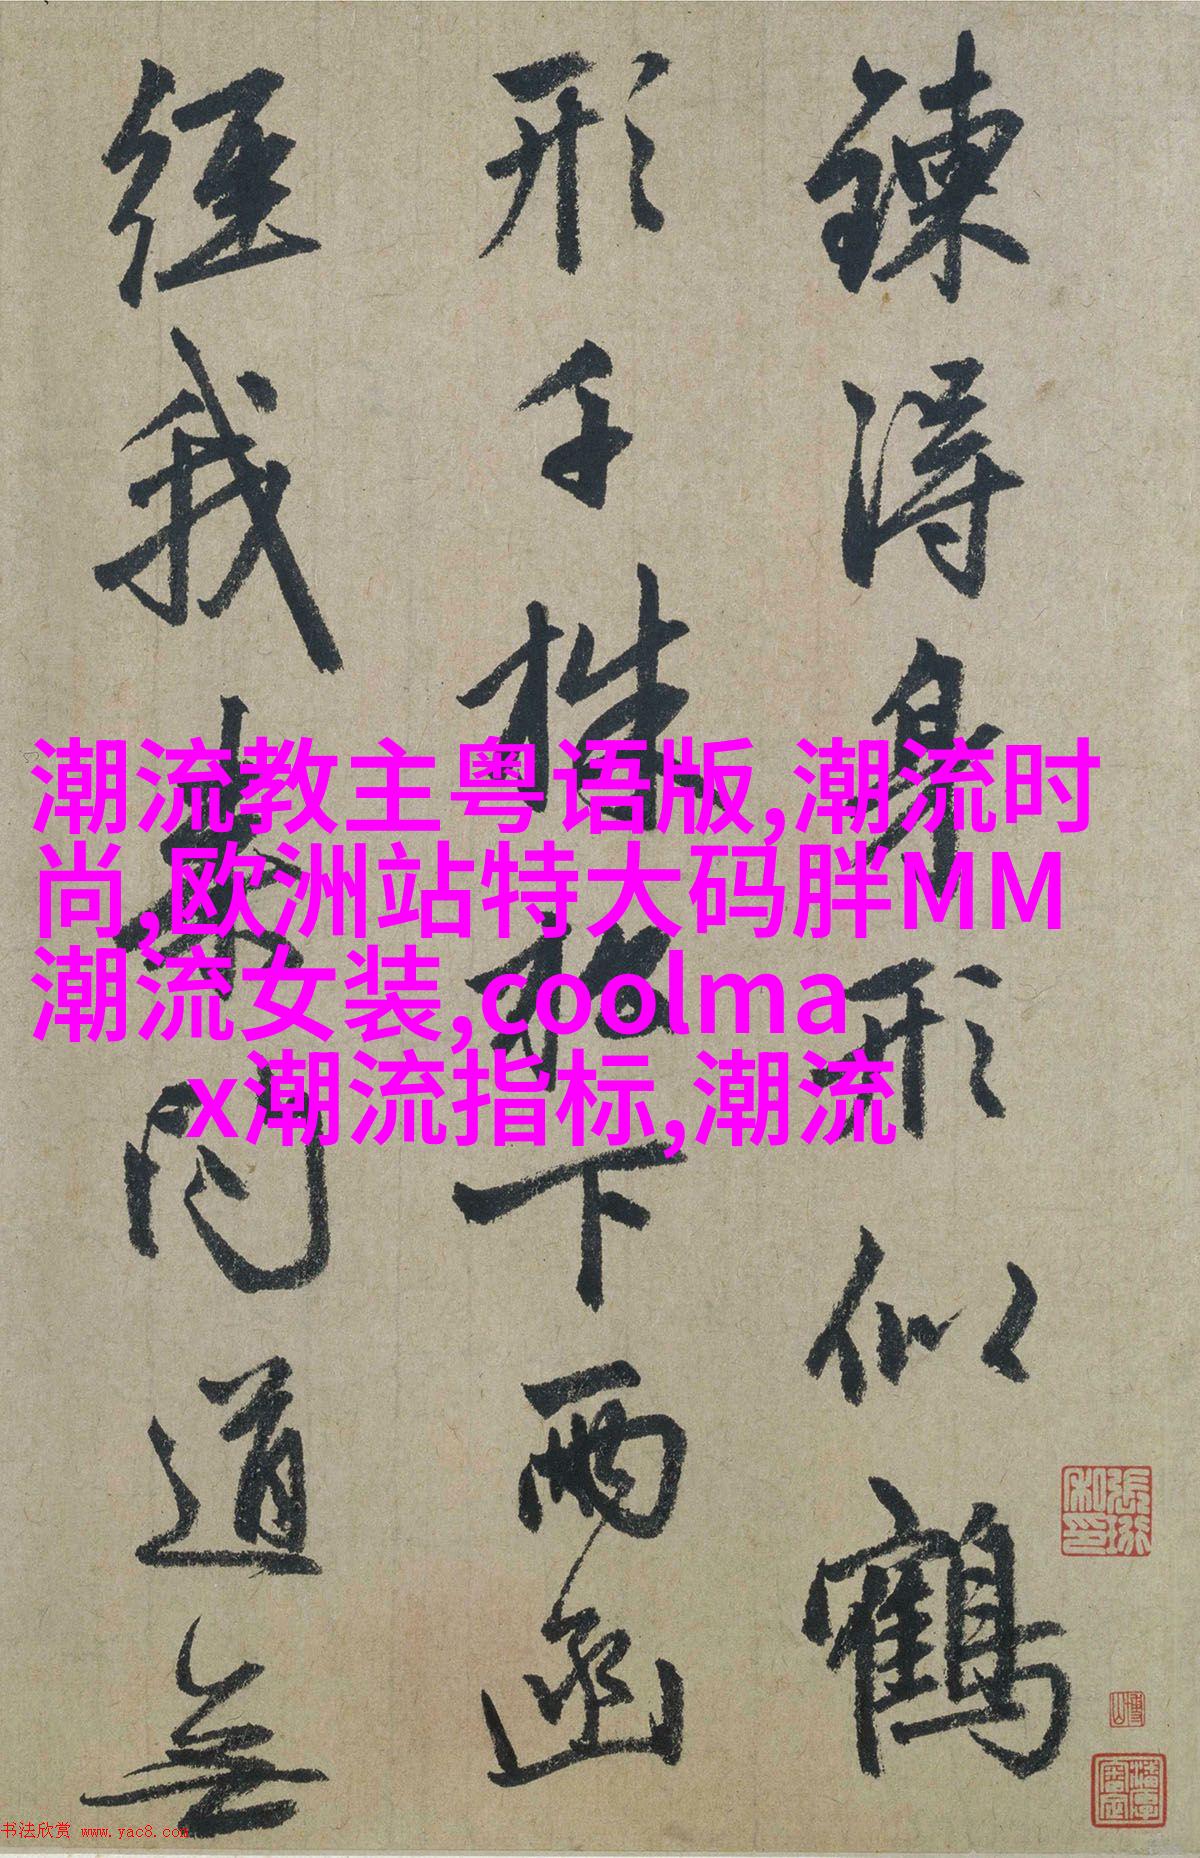 鍊得身形似鶴
形千株松下兩函
經我来問道無
潮流教主粤语版,潮流时
尚,欧洲站特大码胖MM
潮流女装,coolma
x潮流指标,潮流
书法欣赏 www.yac8.com